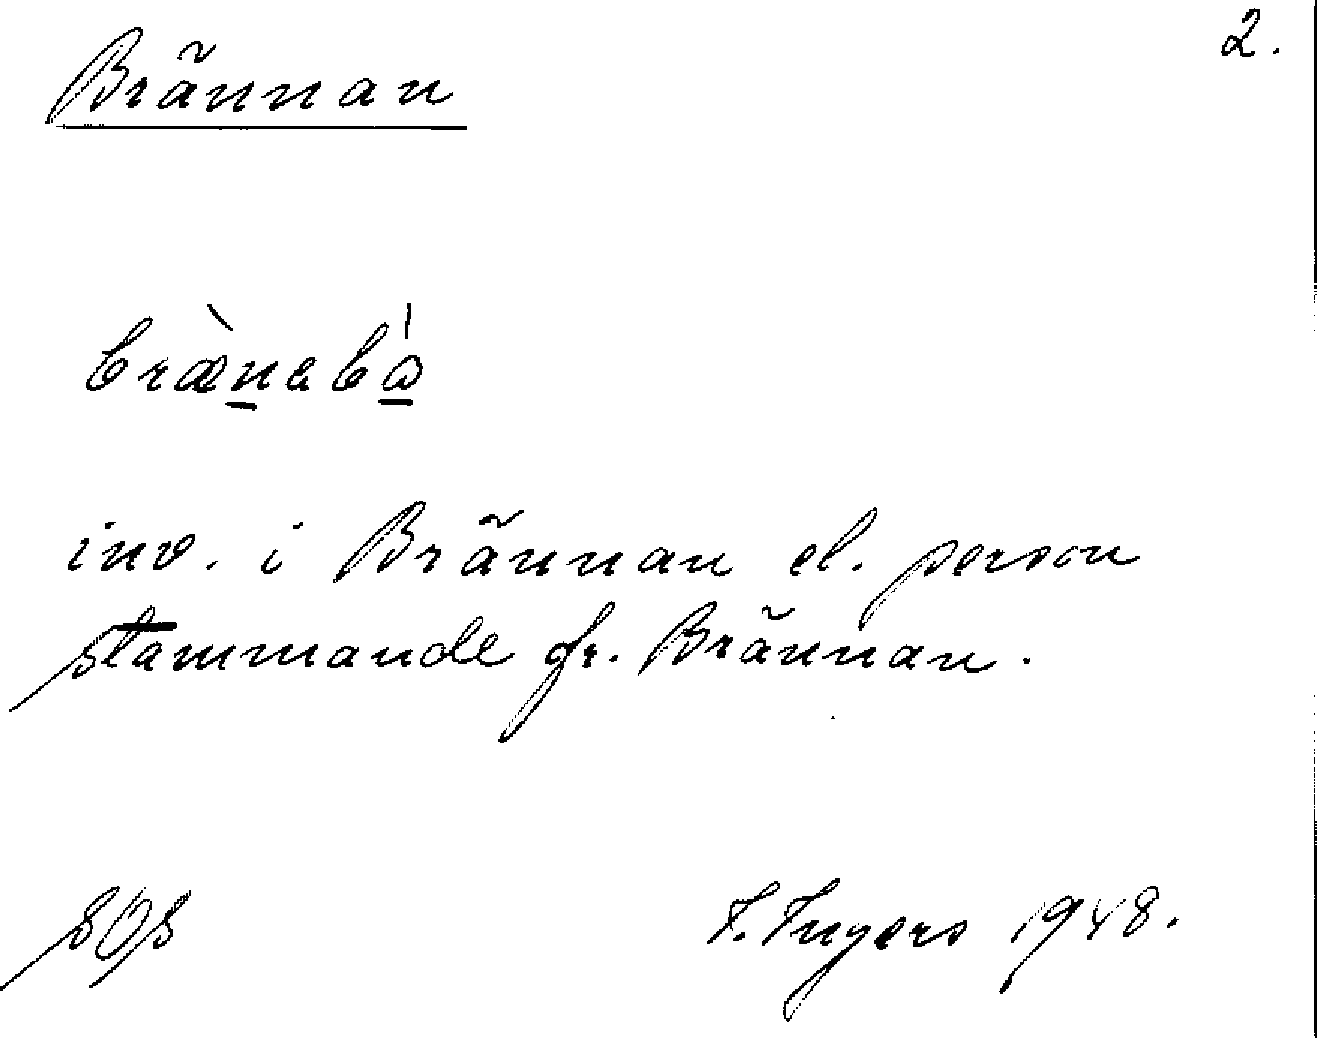 2.
Brännan
bræ̀nabɷ́
inv. i Brännan el. person
stammande fr. Brännan.
SOS
I. Ingers 1948.